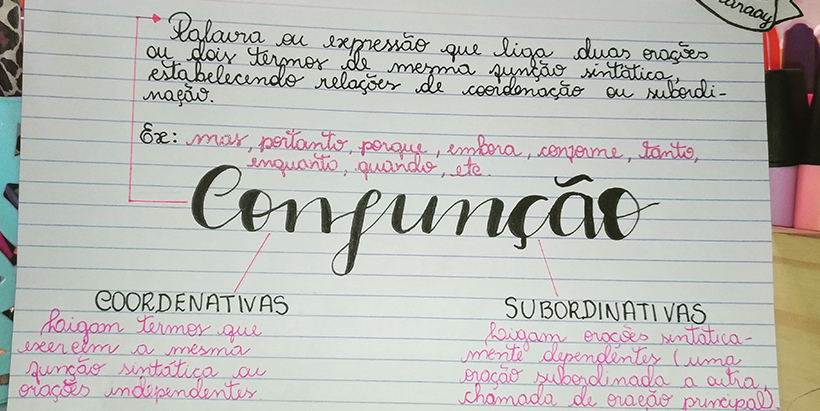 Palavra ou expressão que liga duas orações
ou dois termos de mesma função sintática,
estabelecendo relações de coordenação ou subordi-
nação.
Ex: mas, portanto, porque, embora, conforme, tanto,
enquanto, quando, etc.
Conjunção
COORDENATIVAS
Ligam termos que
exercem a mesma
função sintática ou
orações independentes
SUBORDINATIVAS
Ligam orações sintatica-
mente dependentes (uma
oração subordinada a outra,
chamada de oração principal).